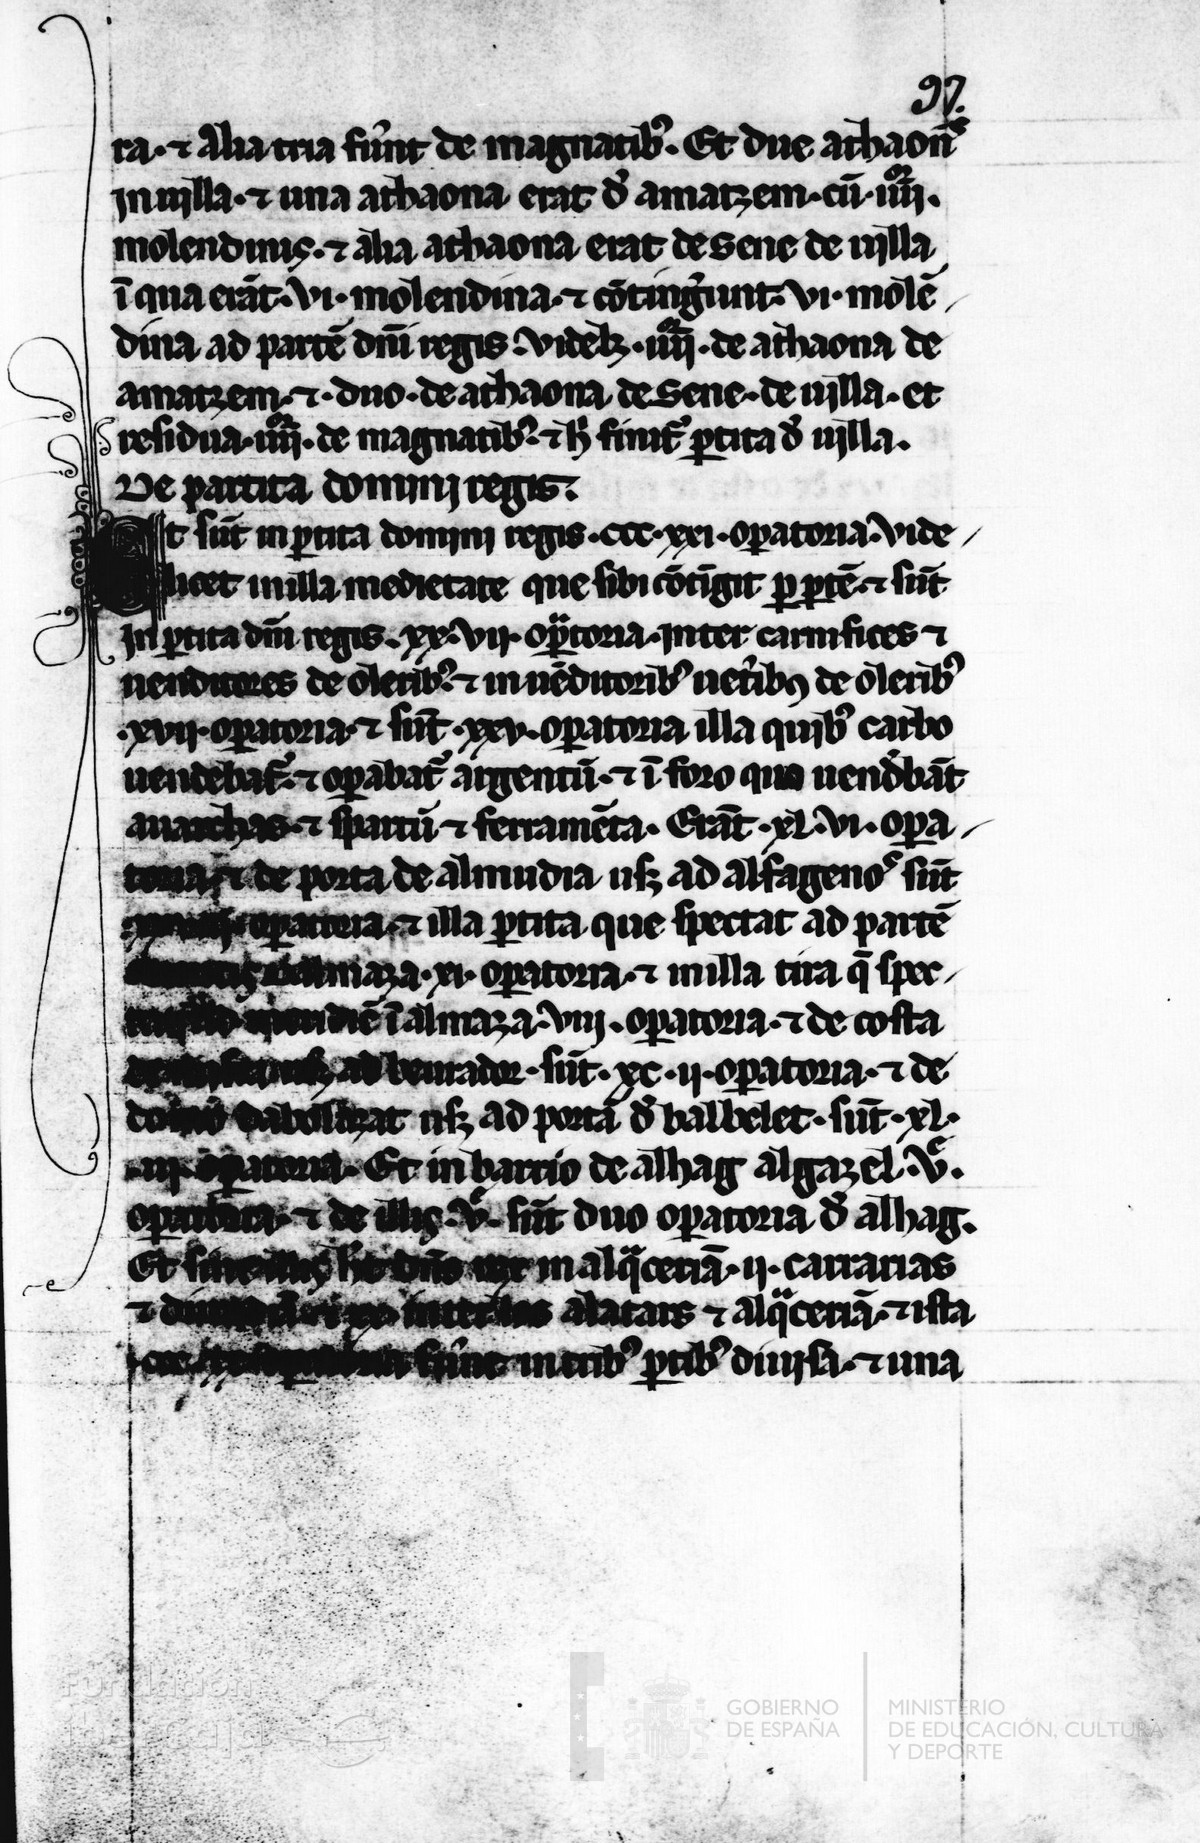 97.
ra· ⁊ alia tria fu͛nt de magnatibꝰ. Et due athaoñ
in uilla· ⁊ una athaona erat đ amatzem· cū· iiii.
molendinis· ⁊ alia athaona erat de Sene de uilla
ī qua erāt· vi· molendina· ⁊ cōting͛unt· vi· molē
dina ad partē dn̄i regis· videlꝫ· iiii· de athaona de
amatzem· ⁊· duo· de athaona de Sene· de uilla· et
residua· iiii· de magnatibꝰ· ⁊ ħ finit᷑ ꝑtita đ uilla.
De partita domini regis.
Et sūt in ꝑtita domini regis· ccc· xxi· oꝑatoria· vide
licet in illa medietate que sibi cōtīgit ꝑ ꝑtē· ⁊ sūt
in ꝑtita dn̄i regis· xx· vii· oꝑatoria· inter carnifices ⁊
uenditores de oleribꝰ· ⁊ in uēditoribꝰ uet͛ibꝰ de oleribꝰ
·xvii· oꝑatoria· ⁊ sūt· xxv· oꝑatoria illa quibꝰ carbo
uendebat᷑· ⁊ oꝑabat᷑ argentū· ⁊ ī foro quo uend͛bāt
auarchas· ⁊ spartū ⁊ ferramēta. Erāt· xl· vi· oꝑa
toria· ⁊ de porta de almudia usꝫ ad alfageno͛ sūt
oꝑatoria· ⁊ illa ꝑtita que spectat ad partē
almaza· xi· oꝑatoria· ⁊ in illa tira q̄ spec
meridiē ī almaza· viii· oꝑatoria· ⁊ de costa
usꝫ ad benrador· sūt· xc· ii· oꝑatoria· ⁊ de
domo usꝫ ad portā đ balbelet· sūt· xl·
·iii· oꝑatoria· Et in barrio de alhag algazel· v͛.
oꝑatoria· ⁊ de illis· v͛· sūt duo oꝑatoria đ alhag.
Et sine illis h̄t dn̄s rex in alqͣceriā· ii· carrarias
⁊ inter los alatars ⁊ alqͣceriā· ⁊ ista
·ccc· fu͛nt in tribꝰ ꝑtibꝰ diuisa· ⁊ una
Fundación
iberCaja
GOBIERNO
DE ESPAÑA
MINISTERIO
DE EDUCACIÓN, CULTURA
Y DEPORTE